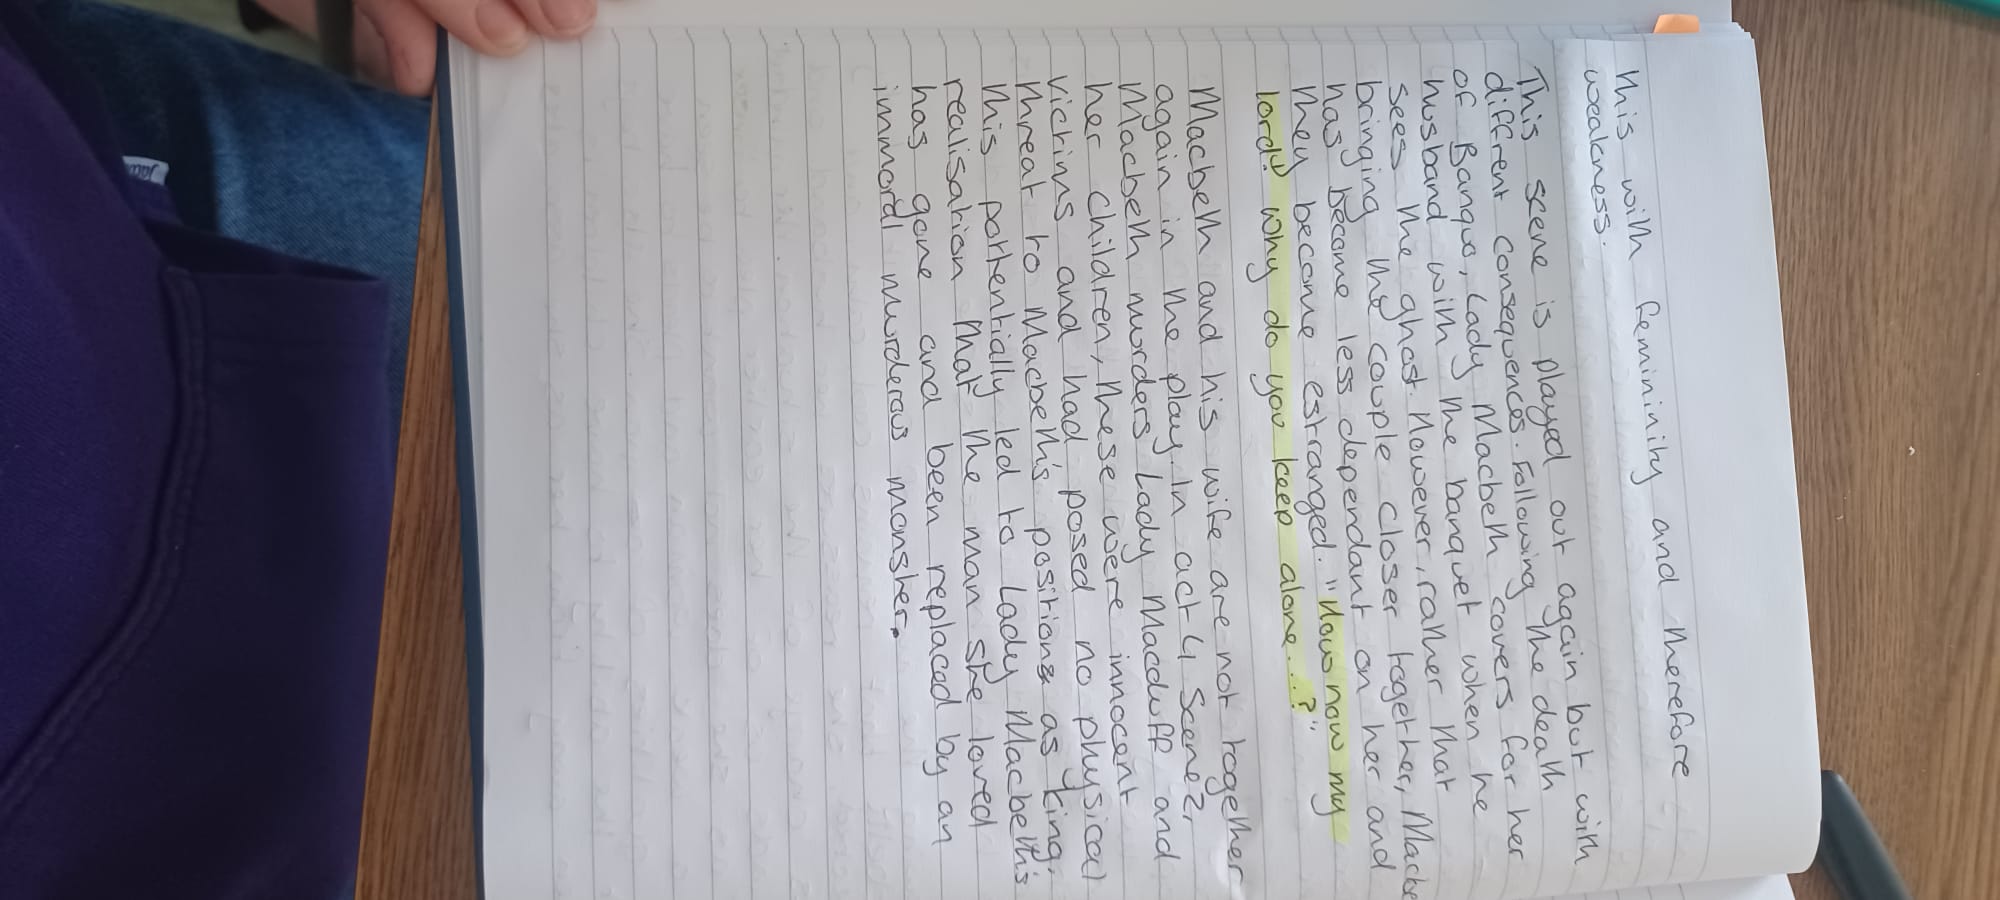 this with femininity and therefore
weakness.
This scene is played out again but with
diffrent consequences. Following the death
of Banquo, Lady Macbeth covers for her
husband with the banquet when he
sees the ghost. However, rather that
bringing the couple closer together, Macbe
has become less dependant on her and
they become estranged. "How now my
lord! why do you keep alone...?"
Macbeth and his wife are not together
again in the play. In act 4 scene 2,
Macbeth murders Lady Macduff and
her children, these were innocent
victims and had posed no physical
threat to Macbeth's positions as king,
this portentially led to Lady Macbeth's
realisation that the man she loved
has gone and been replaced by an
immoral murderous monster.